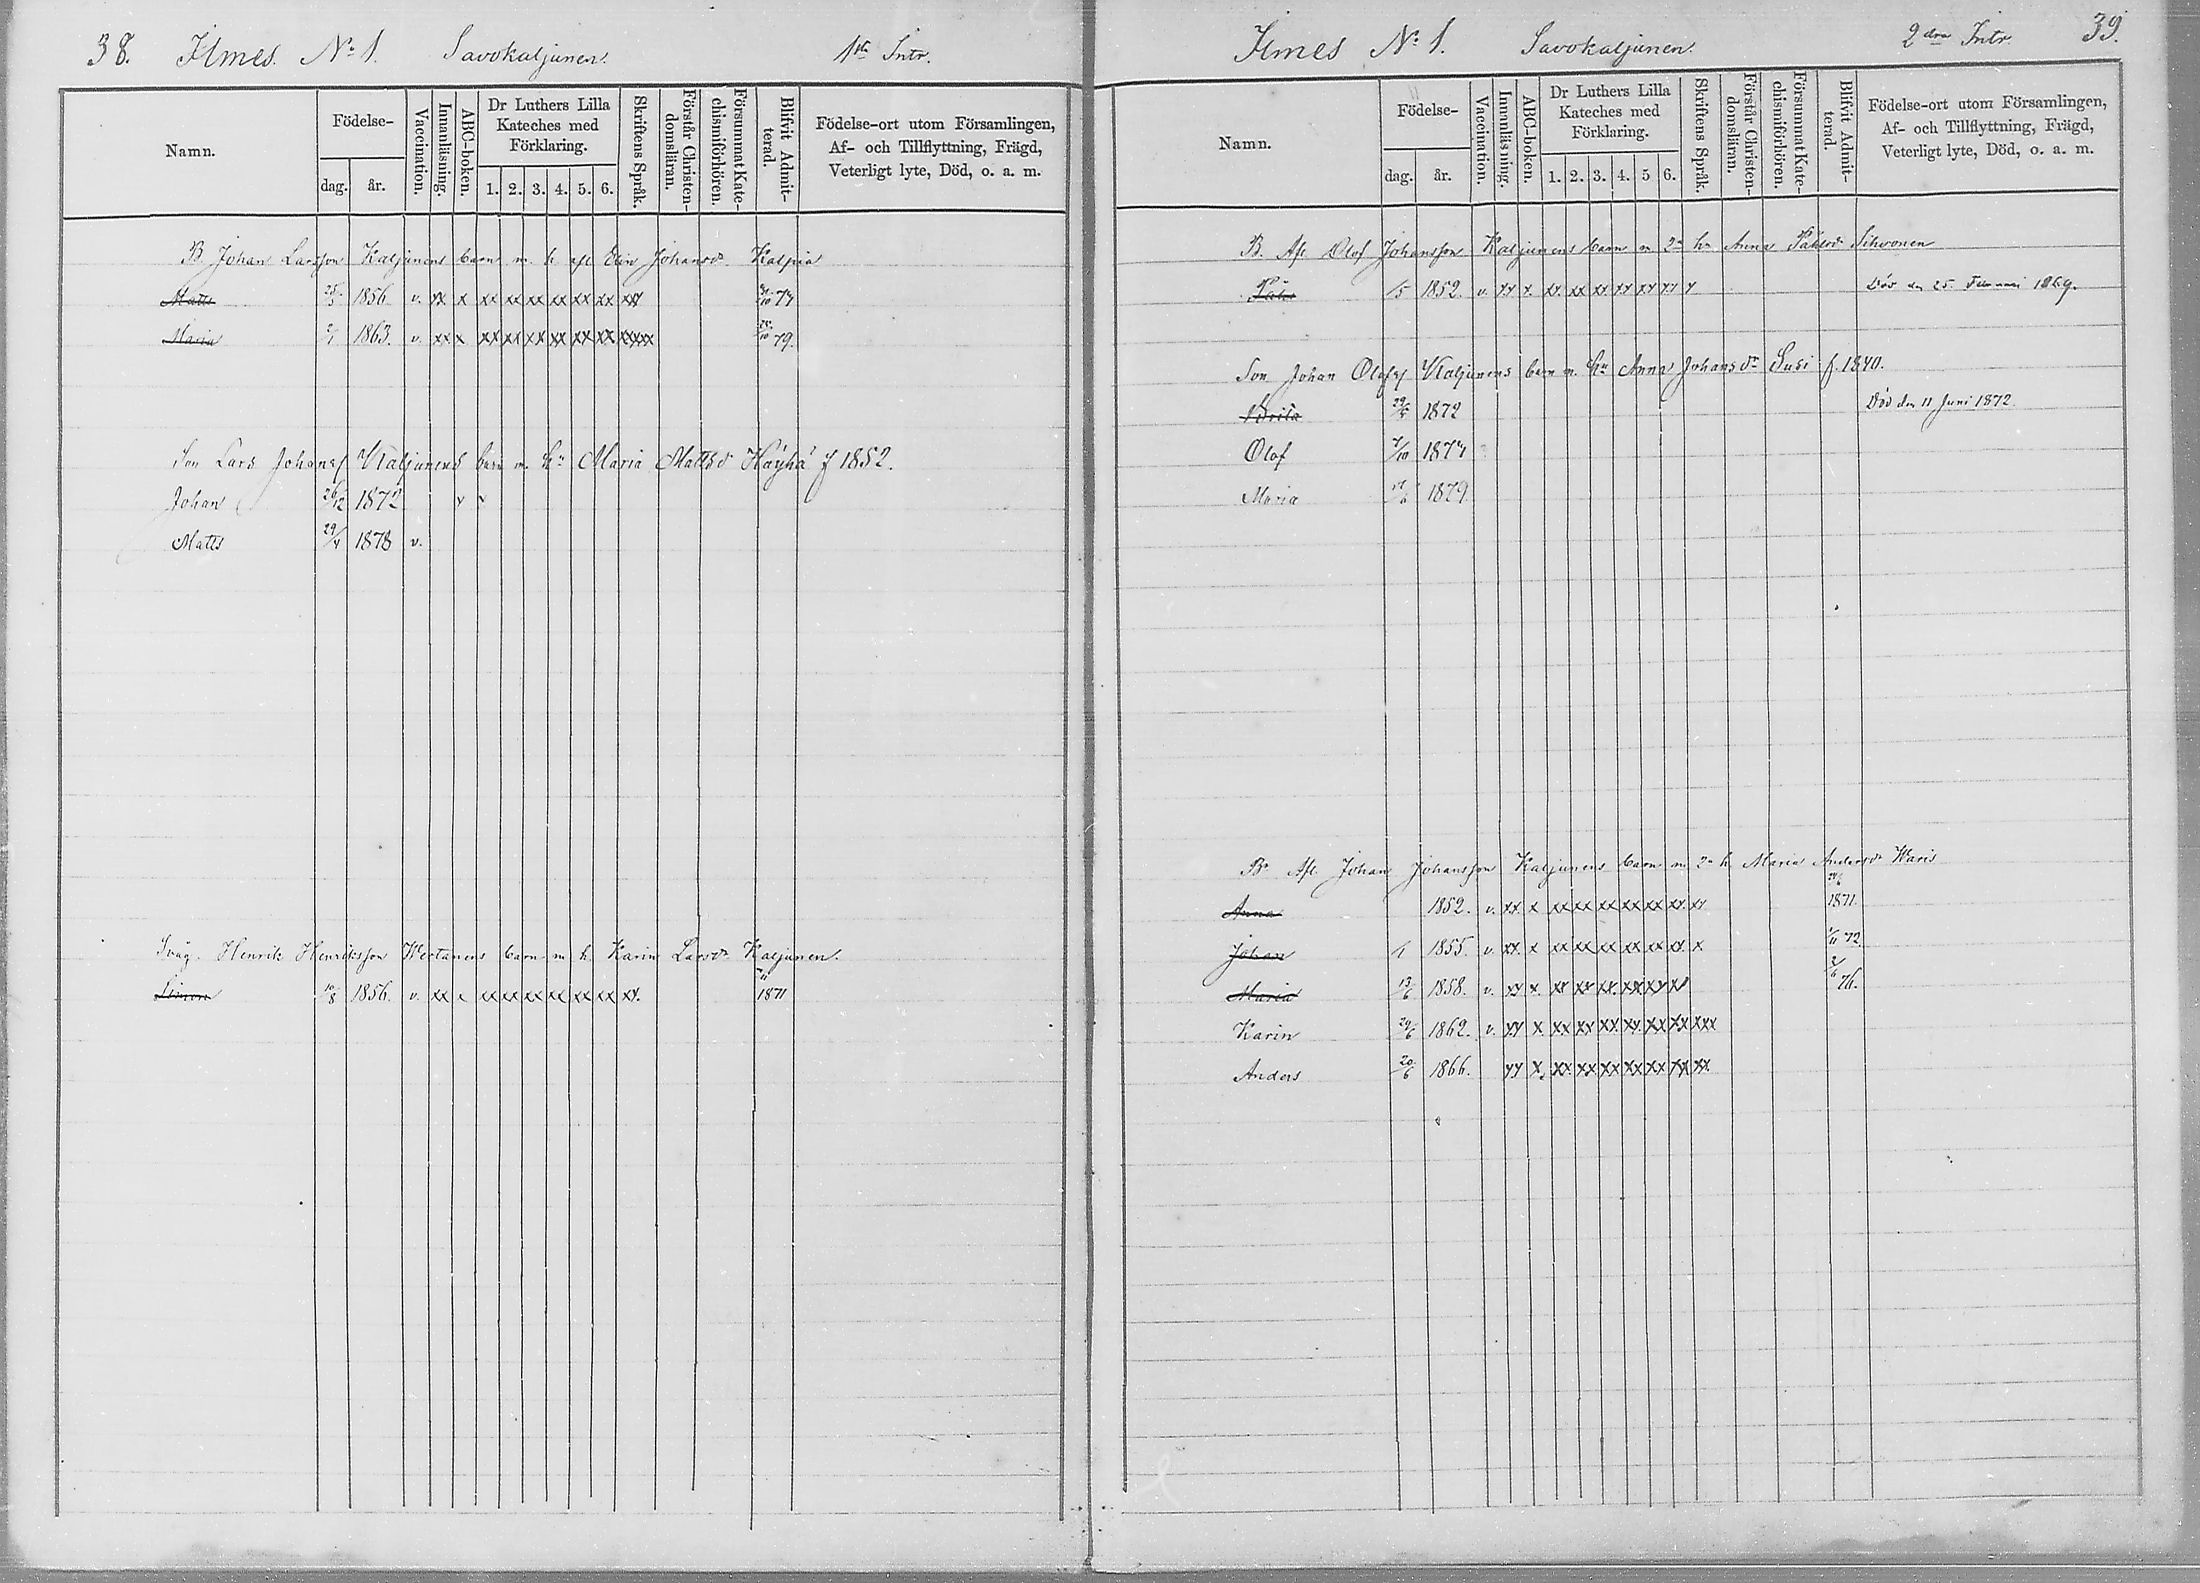 38. Ilmes. No 1. Savokaljunen. 1sta Intr.
Namn.
Födelse-
dag.
år.
Vaccination.
Innanläsning.
ABC-boken.
Dr Luthers Lilla
Kateches med
Förklaring.
1. 2. 3. 4. 5. 6.
Skriftens Språk.
Förstår Christen-
domsläran.
Försummat Kate-
chismiförhören.
Blifvit Admit-
terad.
Födelse-ort utom Församlingen,
Af- och Tillflyttning, Frägd,
Veterligt lyte, Död, o. a. m.
B. Johan Larsson Kaljunens barn m. h. afl. Elin Johansdr
Matts 1856. v. xx x xx xx xx xx xx xx xxx
Maria 1863. v. xx x xx xx xx xx xx xx xxxx 79.
Son Lars Johansf Kaljunens barn m. hu Maria Mattsd Häyhä f 1852.
Johan 26/12 1872 x x
Matts 29/4 1878 v.
Svåg. Henrik Henriksson Wertanens barn m. h. Karin Larsdr Kaljunen.
Simon 10/8 1856. v. xx x xx xx xx xx xx xx xx. 1871
Ilmes No 1. Savokaljunen. 2dra Intr. 39.
Namn.
Födelse-
dag.
år.
Vaccination.
Innanläsning.
ABC-boken.
Dr Luthers Lilla
Kateches med
Förklaring.
1. 2. 3. 4. 5 6.
Skriftens Språk.
Förstår Christen-
domsläran.
Försummat Kate-
chismiförhören.
Blifvit Admit-
terad.
Födelse-ort utom Församlingen,
Af- och Tillflyttning, Frägd,
Veterligt lyte, Död, o. a. m.
B. Afl. Olof Johansson Kaljunens barn m. 2a hu Anna Påhlsdr Sihvonen
1852. v. xx x. xx. xx xx xx xx xx x Död den 25 1869.
Son Johan Olofsf Kaljunens barn m. hu Anna Johansdr Susi f. 1840.
29/5 1872 Död den 11 Juni 1872.
Olof 1874
Maria 1879
Br Afl. Johan Johansson Kaljunens barn m. 2a h. Maria Andersdr Waris
Anna 1852. v. xx. x xx xx xx xx xx xx. xx 1871.
Johan 1855. v. xx. x xx xx xx xx xx xx. x 72.
Maria 13/6 1858. v. xx x. xx xx xx. xx xx xx 76.
Karin 29/6 1862. v. xx x xx xx xx. xx. xx xx xxx
Anders 20/6 1866. xx x. xx. xx xx xx xx xx xx.